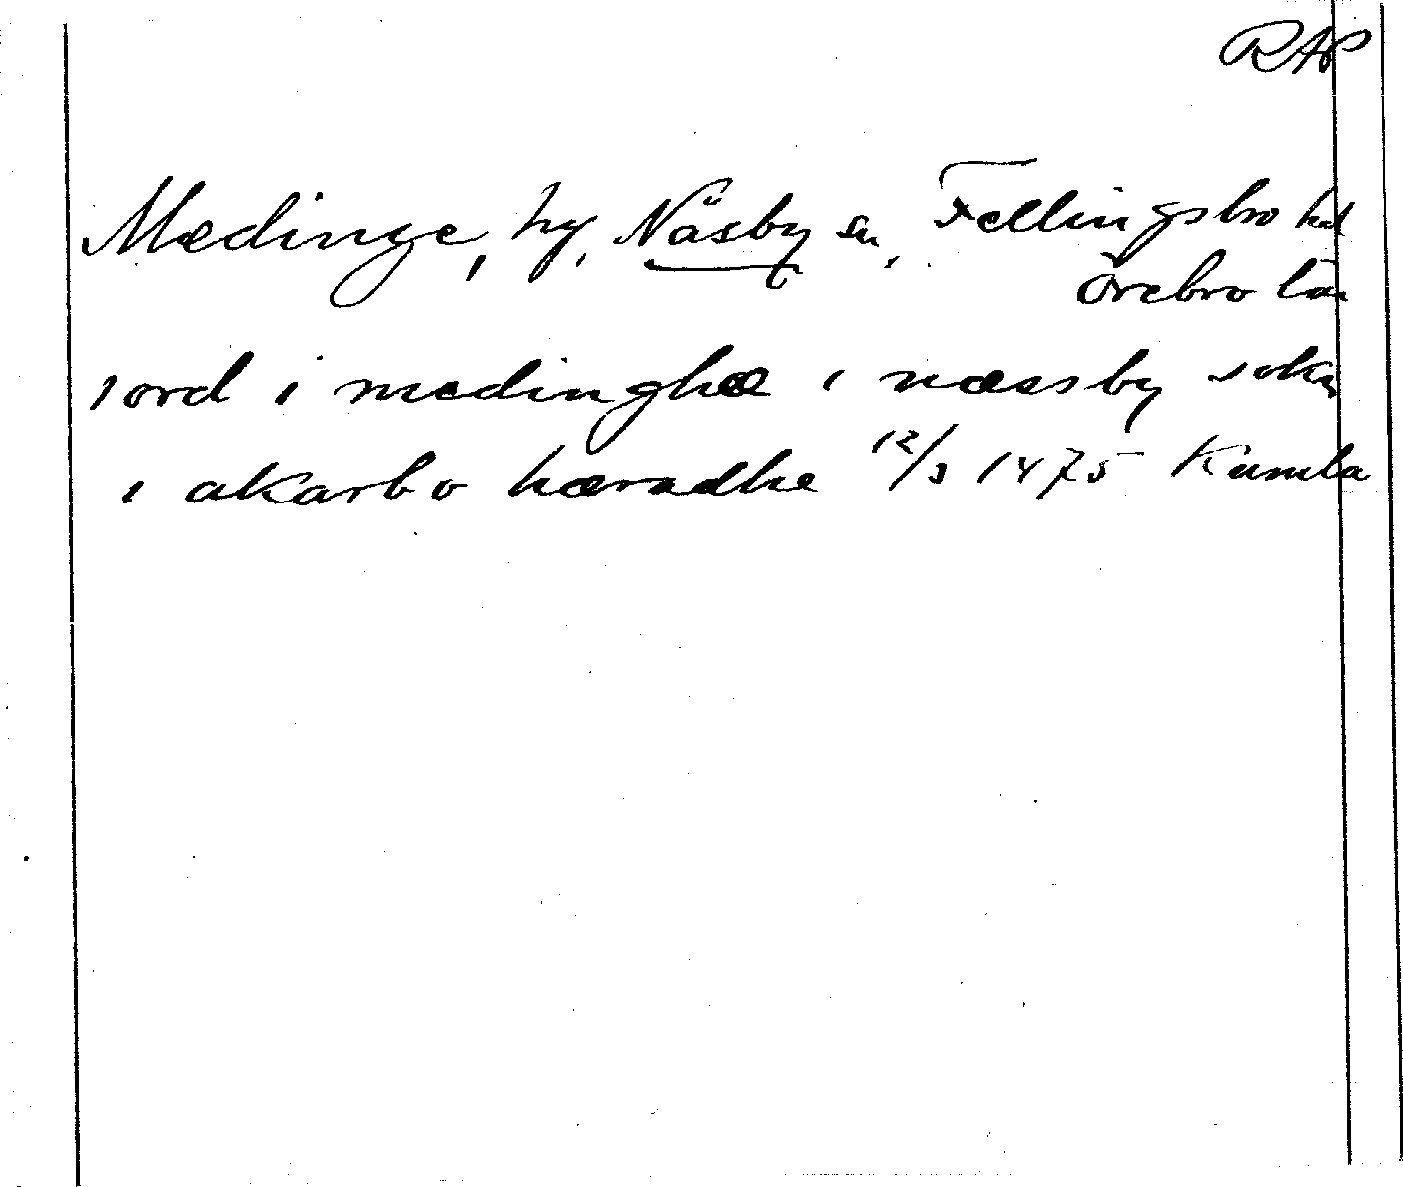 RAP
Medinge, by, Näsby sn, Fellingsbro hd
Örebro län
iord i medinghæ i næssby sokn
i akarbo hæradhe 12/3 1475 Kumla